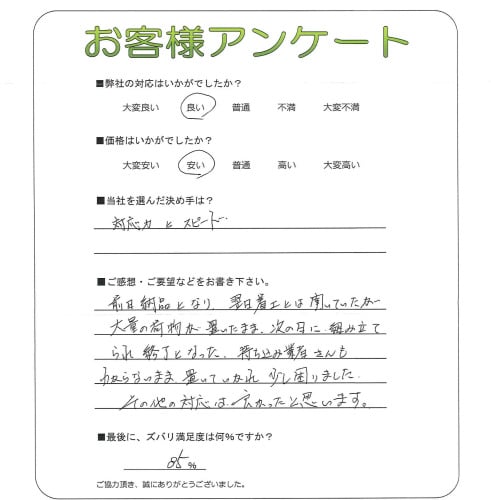 お客様アンケート
■弊社の対応はいかがでしたか？
大変良い 良い 普通 不満 大変不満
■価格はいかがでしたか？
大変安い 安い 普通 高い 大変高い
■当社を選んだ決め手は？
対応力とスピード
■ご感想・ご要望などをお書き下さい。
前日納品となり、翌日着工とは聞いていたが
大量の荷物が置いたまま、次の日に組み立て
られ終了となった。持ち込み業者さんも
わからないまま置いていかれ少し困りました。
その他の対応は良かったと思います。
■最後に、ズバリ満足度は何％ですか？
85％
ご協力頂き、誠にありがとうございました。